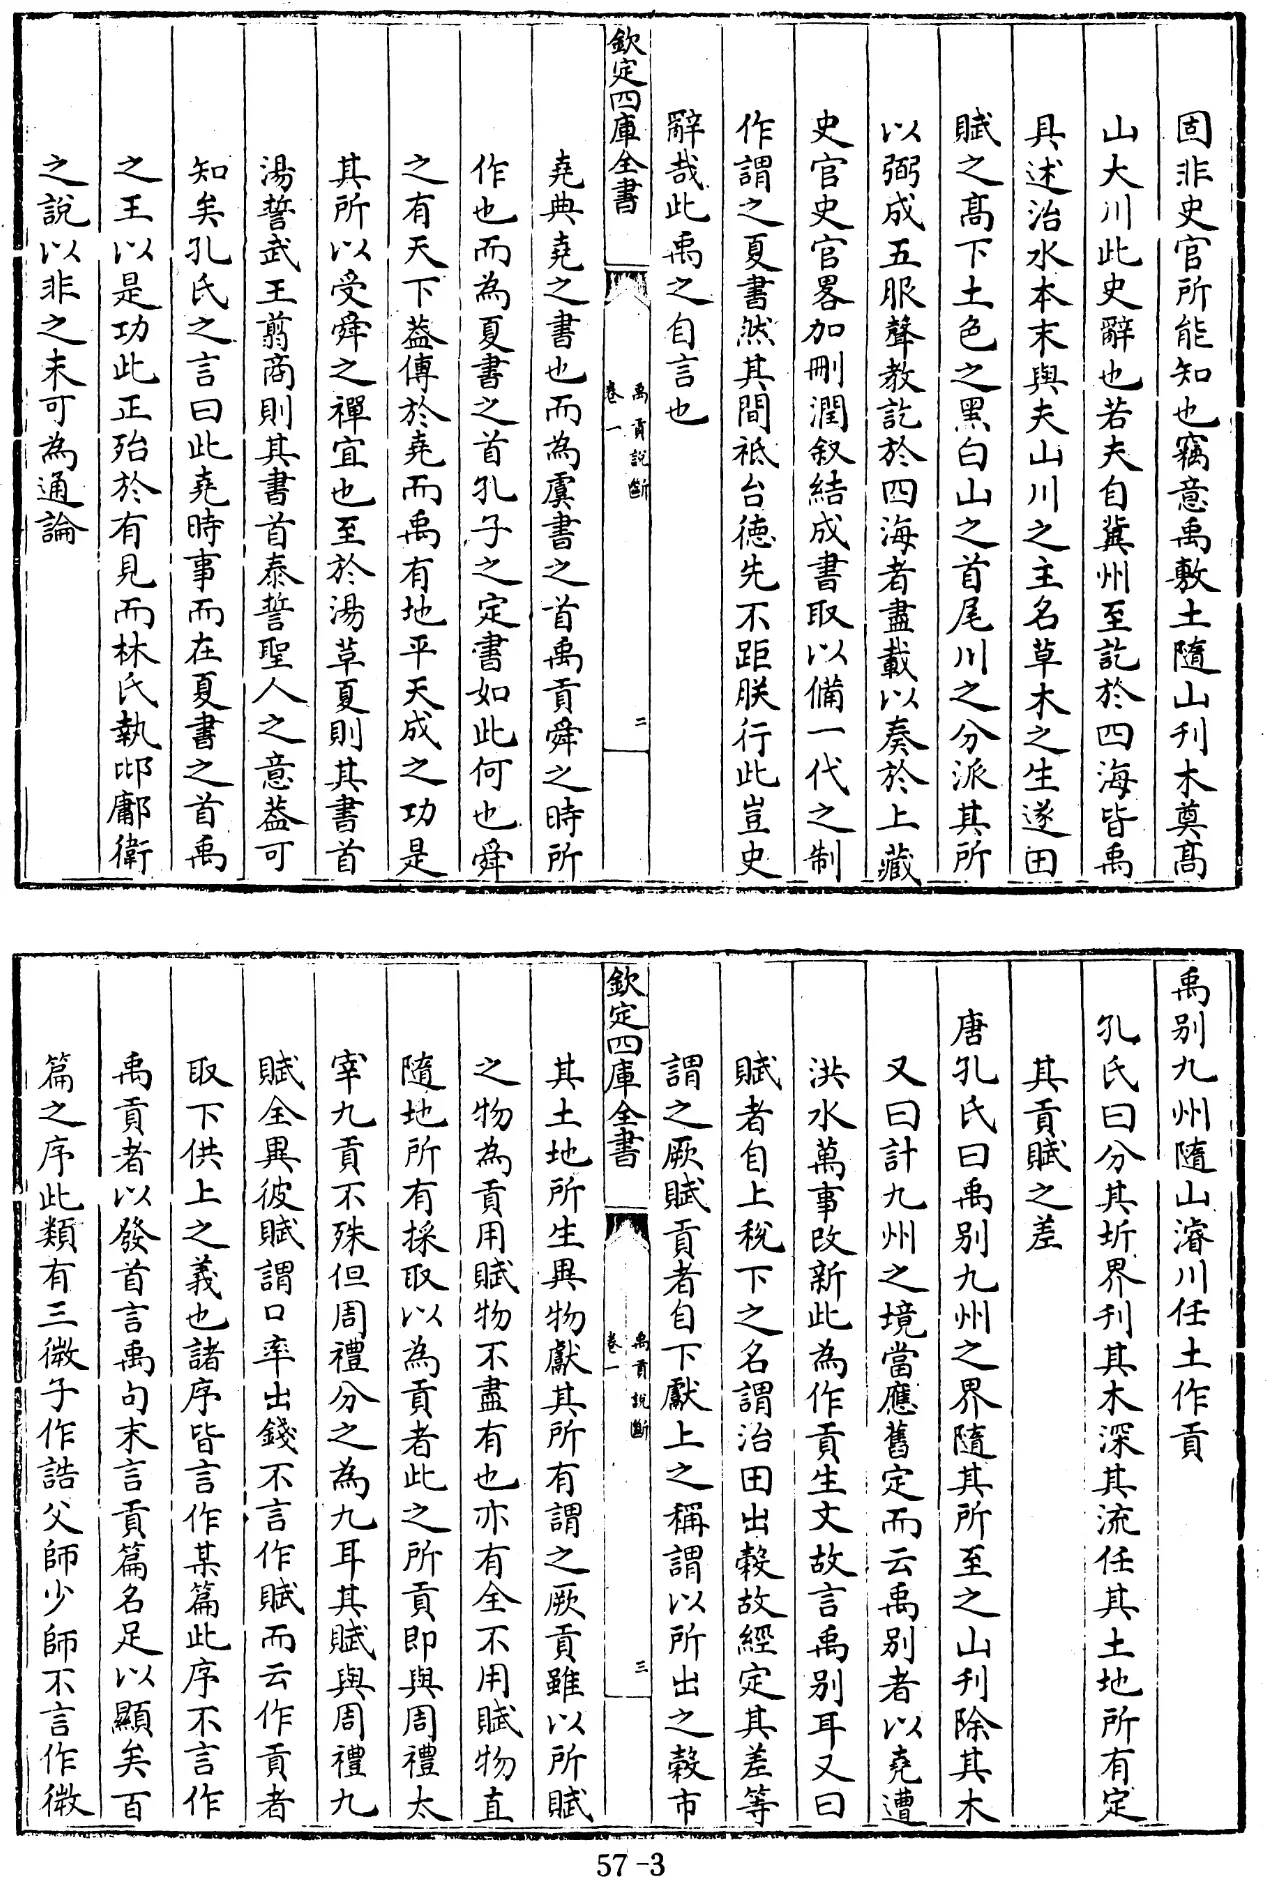 固非史官所能知也竊意禹敷土隨山刋木奠髙
山大川此史辭也若夫自冀州至訖於四海皆禹
具述治水本末與夫山川之主名草木之生遂田
賦之髙下土色之黑白山之首尾川之分派其所
以弼成五服聲教訖於四海者盡載以奏於上藏
史官史官畧加刪潤叙結成書取以備一代之制
作謂之夏書然其間祗台德先不距朕行此豈史
辭哉此禹之自言也
欽定四庫全書
禹貢說斷
卷一
二
堯典堯之書也而為虞書之首禹貢舜之時所
作也而為夏書之首孔子之定書如此何也舜
之有天下葢傳於堯而禹有地平天成之功是
其所以受舜之禪宜也至於湯革夏則其書首
湯誓武王翦商則其書首泰誓聖人之意葢可
知矣孔氏之言曰此堯時事而在夏書之首禹
之王以是功此正殆於有見而林氏執邶鄘衛
之說以非之未可為通論
禹別九州隨山濬川任土作貢
孔氏曰分其圻界刋其木深其流任其土地所有定
其貢賦之差
唐孔氏曰禹別九州之界隨其所至之山刋除其木
又曰計九州之境當應舊定而云禹別者以堯遭
洪水萬事改新此為作貢生文故言禹別耳又曰
賦者自上稅下之名謂治田出穀故經定其差等
謂之厥賦貢者自下獻上之稱謂以所出之穀市
欽定四庫全書
禹貢說斷
卷一
三
其土地所生異物獻其所有謂之厥貢雖以所賦
之物為貢用賦物不盡有也亦有全不用賦物直
隨地所有採取以為貢者此之所貢即與周禮太
宰九貢不殊但周禮分之為九耳其賦與周禮九
賦全異彼賦謂口率出錢不言作賦而云作貢者
取下供上之義也諸序皆言作某篇此序不言作
禹貢者以發首言禹句末言貢篇名足以顯矣百
篇之序此類有三微子作誥父師少師不言作微
57-3